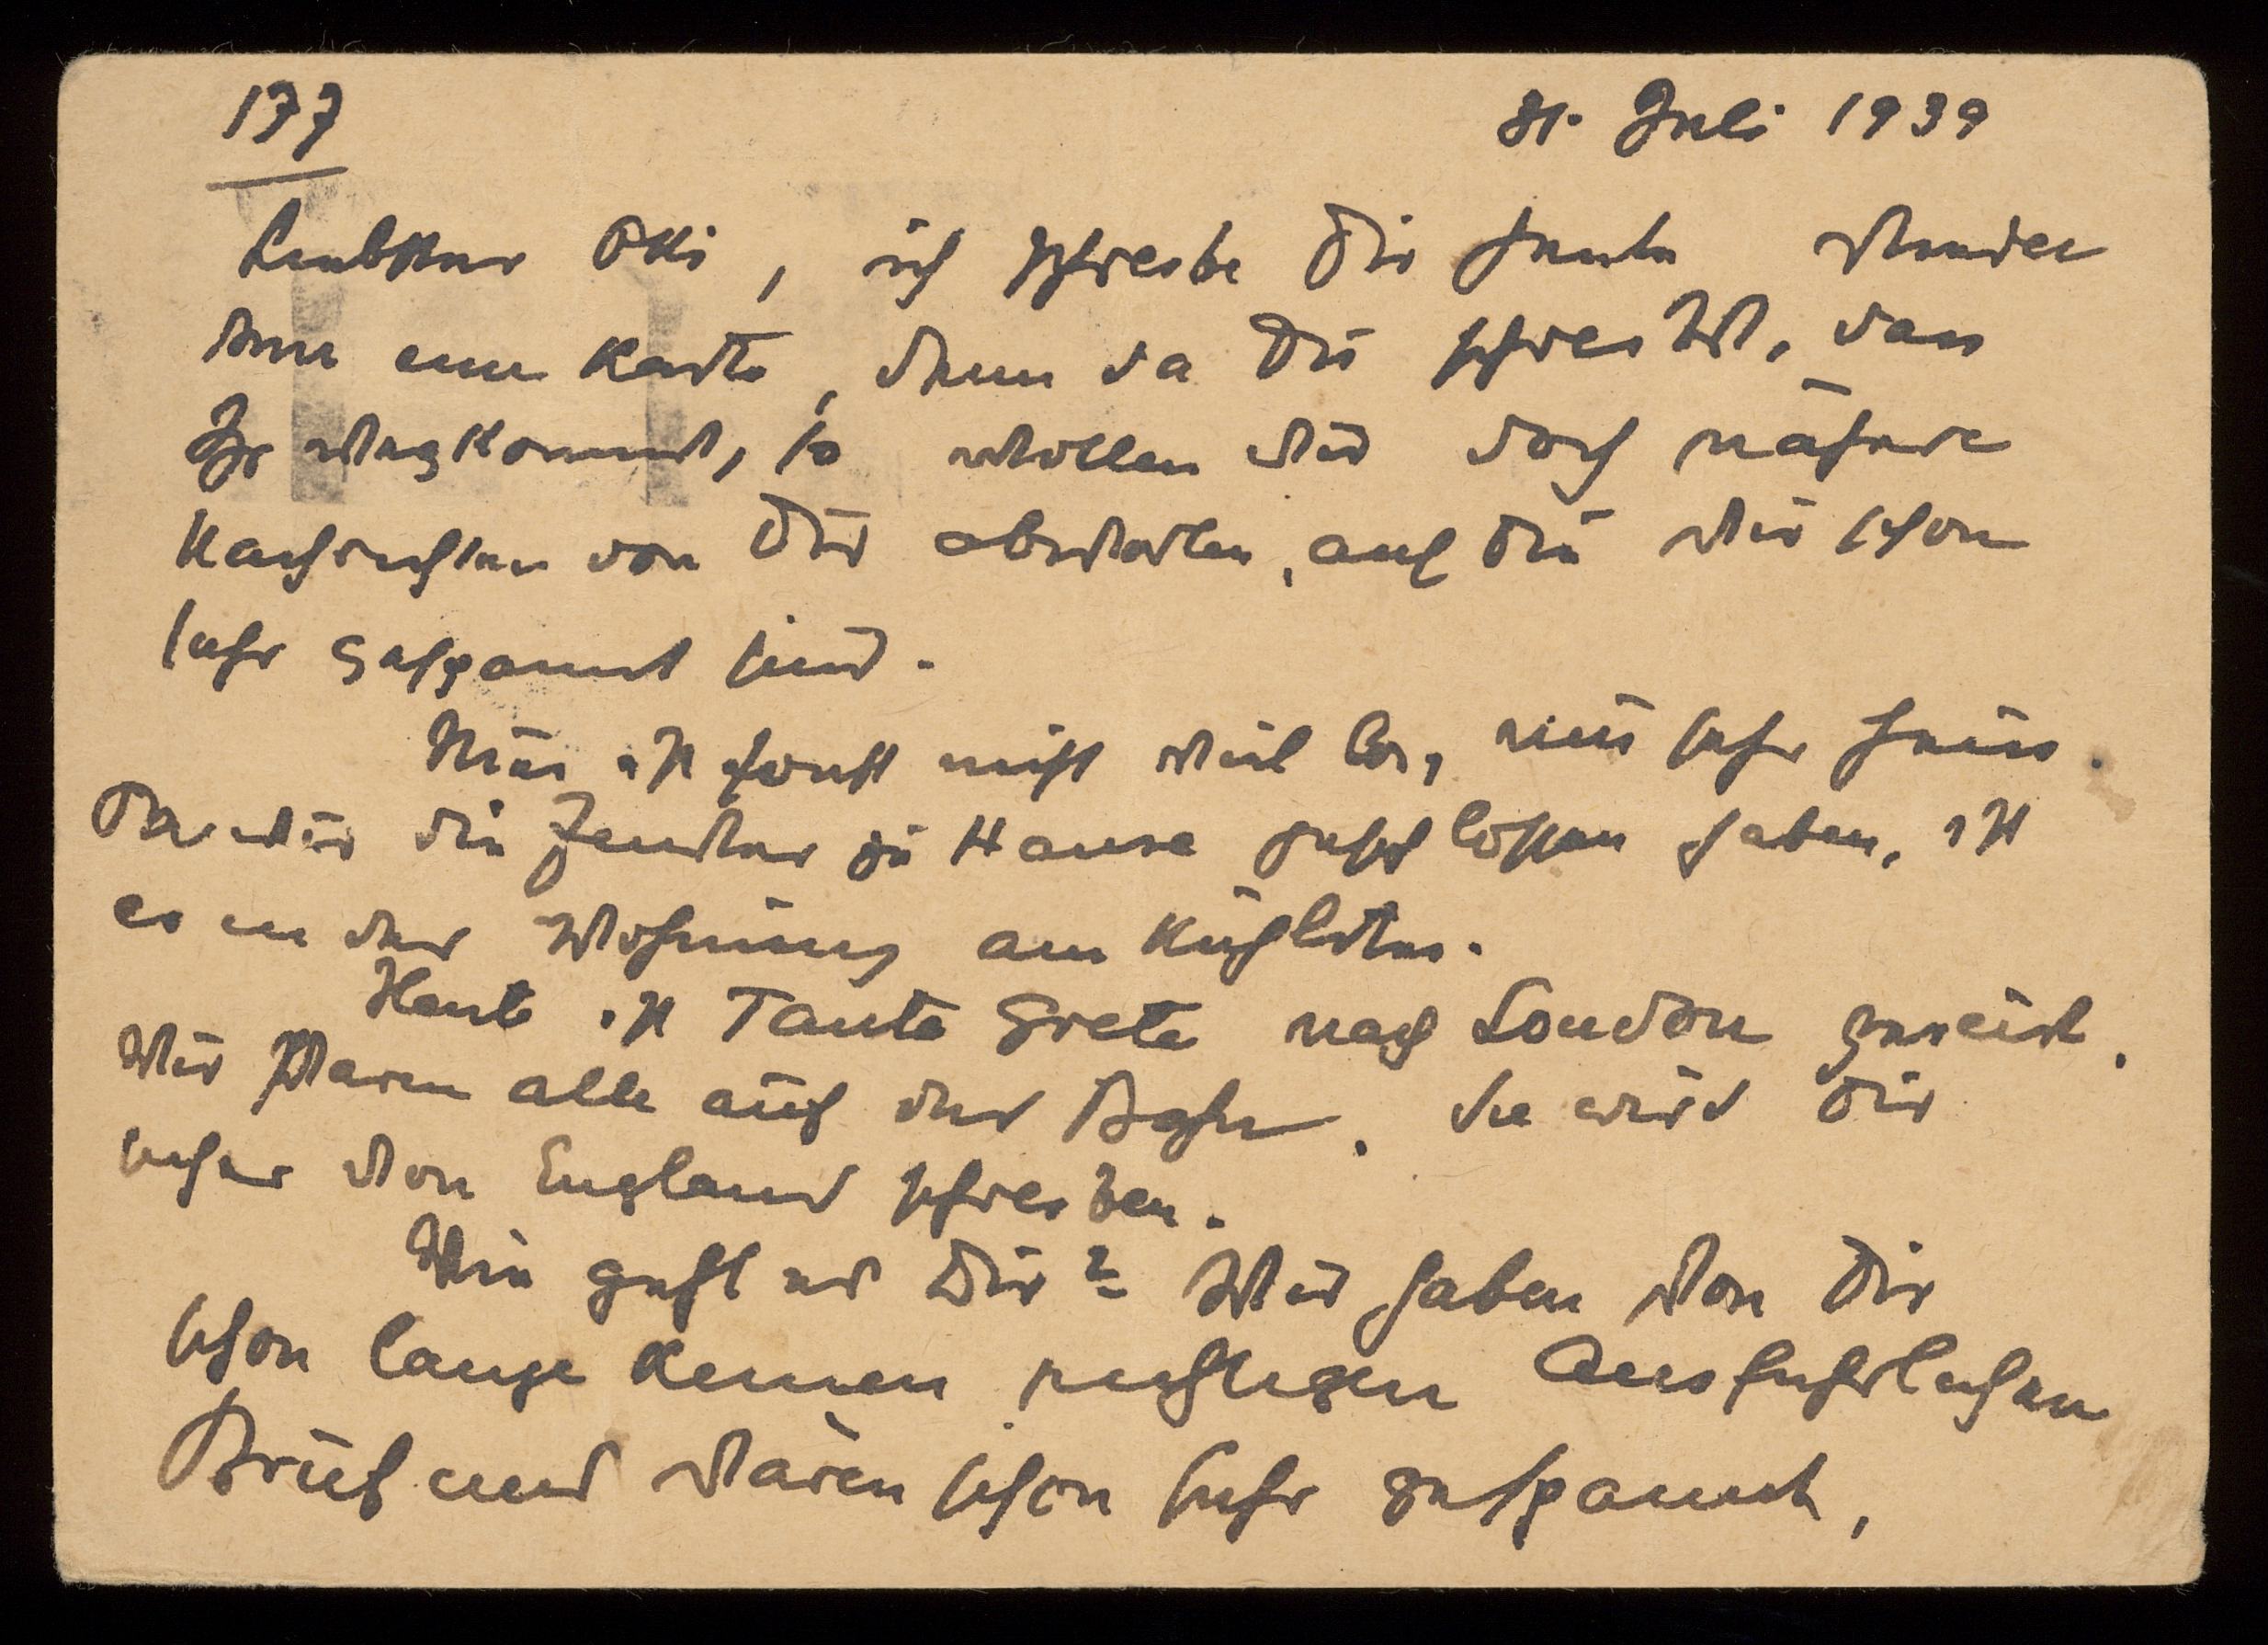 177
31. Juli 1939
Liebster Otti, ich schreibe Dir heute wieder
nur eine Karte, denn da Du schreibst, dass
Ihr wegkommt, so wollen wir doch nähere
Nachrichten von Dir abwarten, auf die wir schon
sehr gespannt sind.
Hier ist sonst nicht viel los, nur sehr heiss.
Da wir die Fenster zu Hause geschlossen haben, ist
es in der Wohnung am kühlsten.
Heute ist Tante Grete nach London gereist.
Wir waren alle auf der Bahn. Sie wird Dir
sicher von England schreiben.
Wie geht es Dir? Wir haben von Dir
schon lange keinen richtigen ausführlichen
Brief und wären schon sehr gespannt,